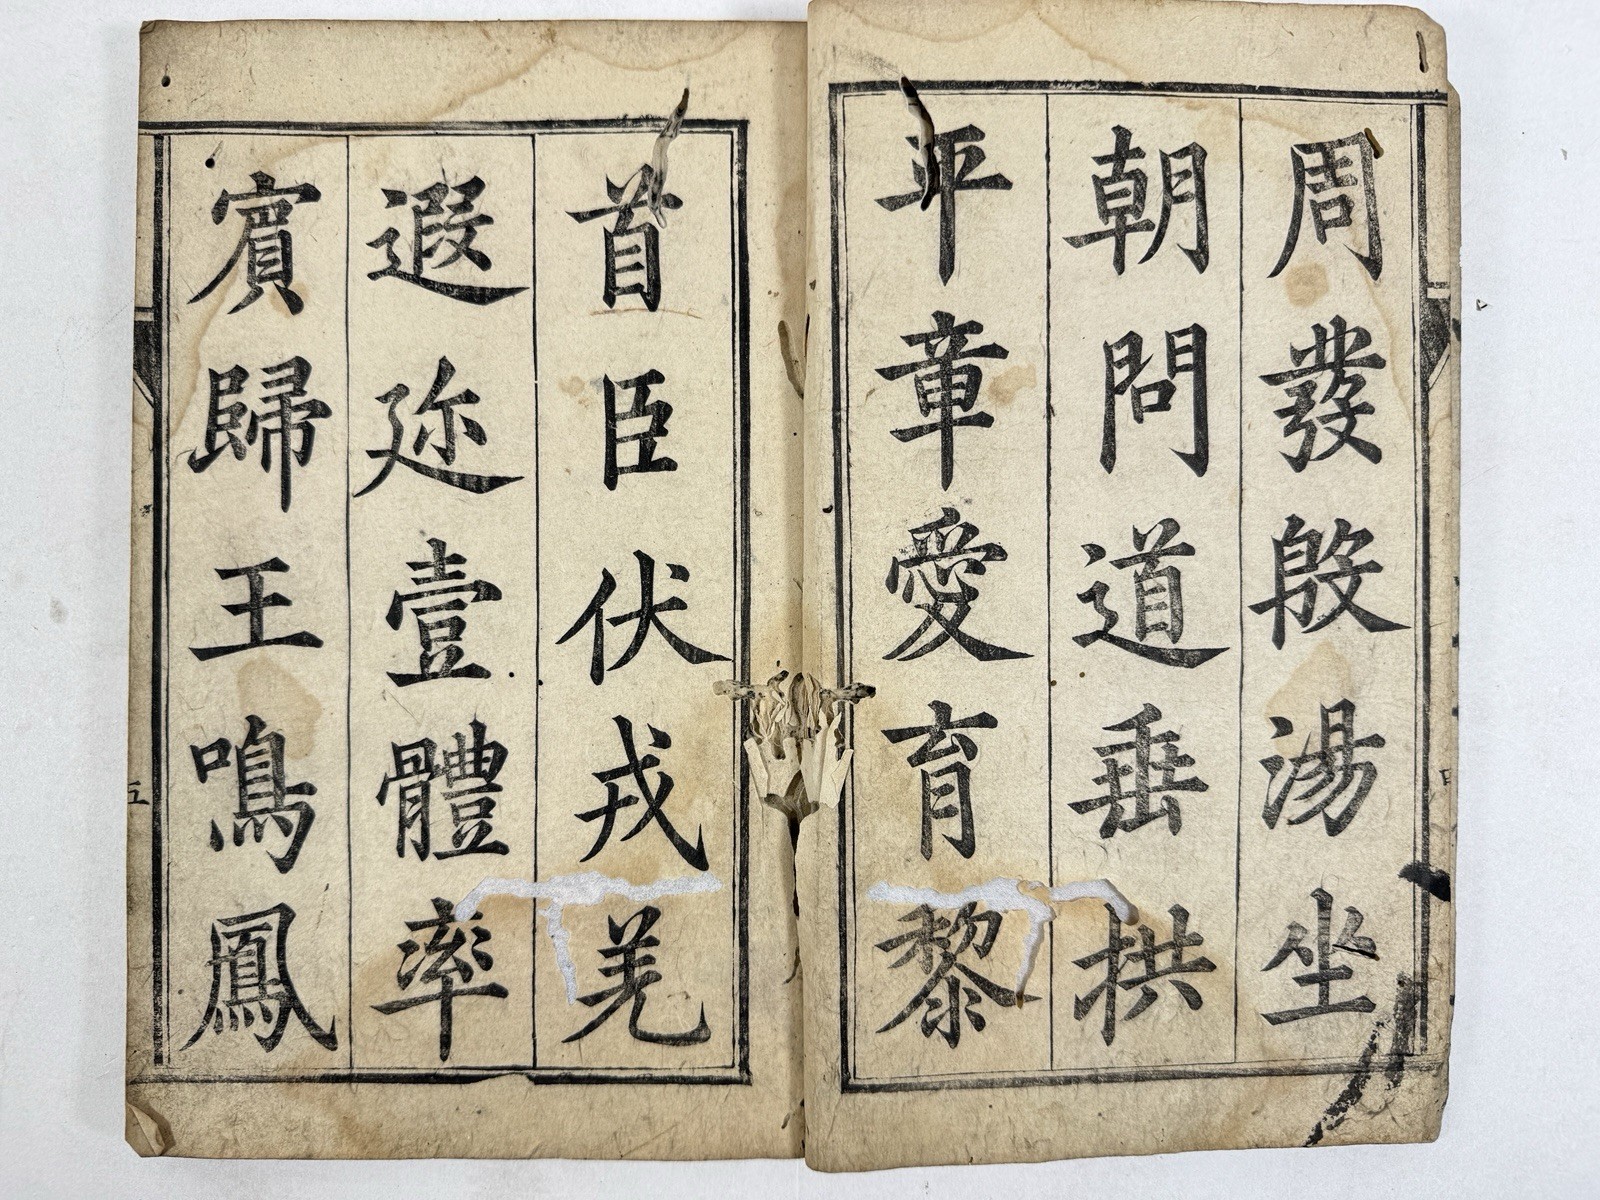 周發殷湯坐
朝問道垂拱
平章愛育黎
首臣伏戎羌
遐迩壹體率
賓歸王鳴鳳
五